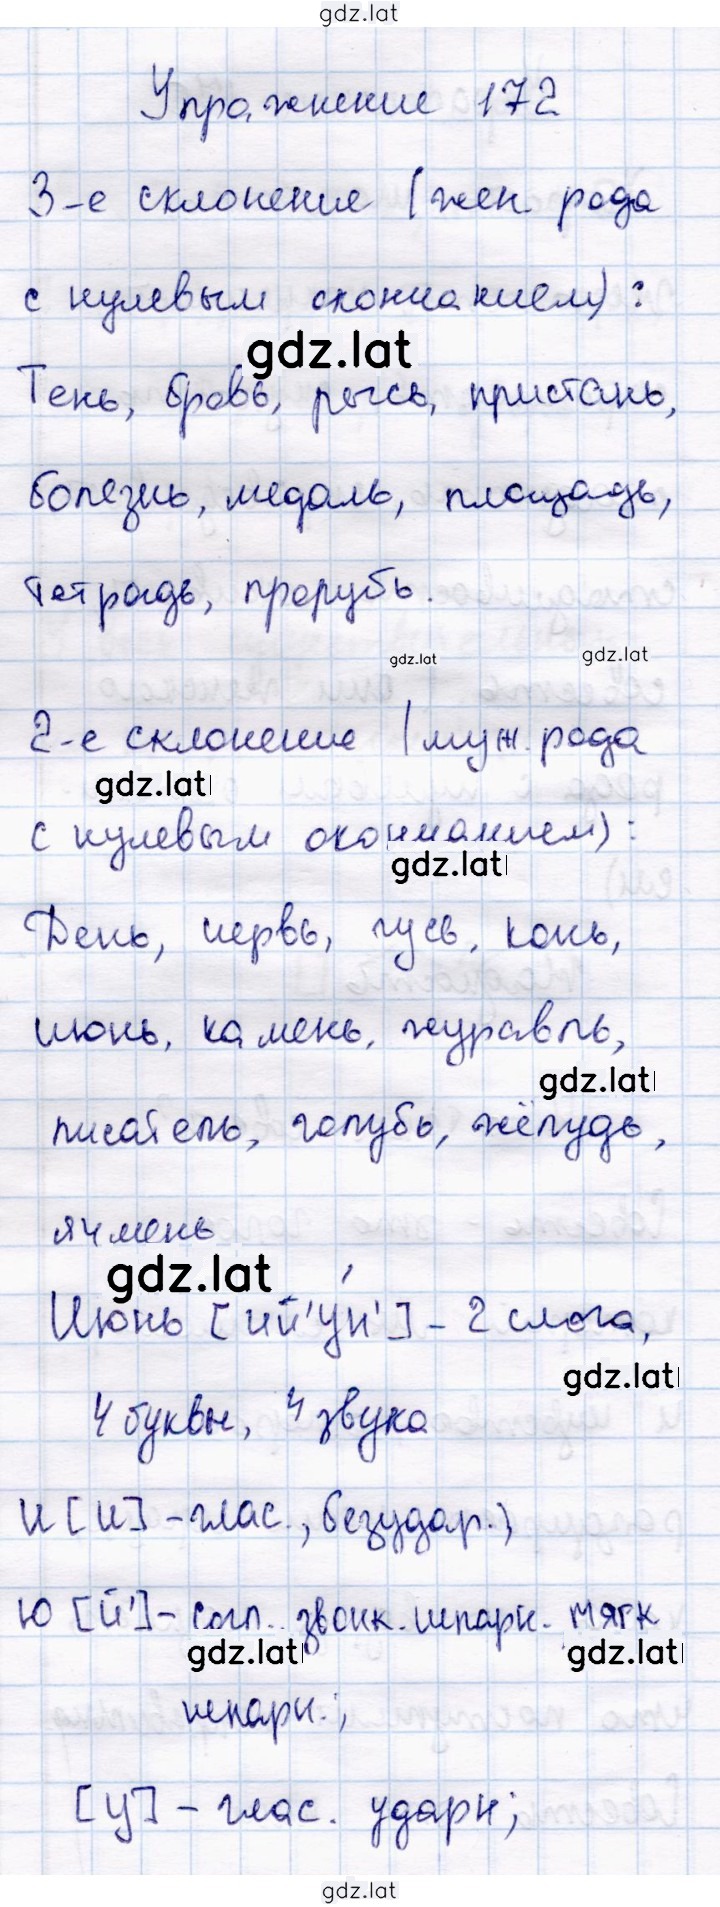 gdz.lat
Упражнение 172
3-е склонение (жен. рода
с нулевым окончанием):
gdz.lat
Тень, бровь, рысь, пристань,
болезнь, медаль, площадь,
тетрадь, прорубь.
gdz.lat
gdz.lat
2-е склонение (муж. рода
gdz.lat
с нулевым окончанием):
gdz.lat
День, червь, гусь, конь,
июнь, камень, журавль,
gdz.lat
писатель, голубь, жёлудь,
ячмень
gdz.lat
Июнь [ий'ун'] – 2 слога,
gdz.lat
4 буквы, 4 звука
И [и] – глас., безудар.;
Ю [й'] – согл. звонк. непарн. мягк
gdz.lat
gdz.lat
непарн.;
[у] – глас. ударн;
gdz.lat